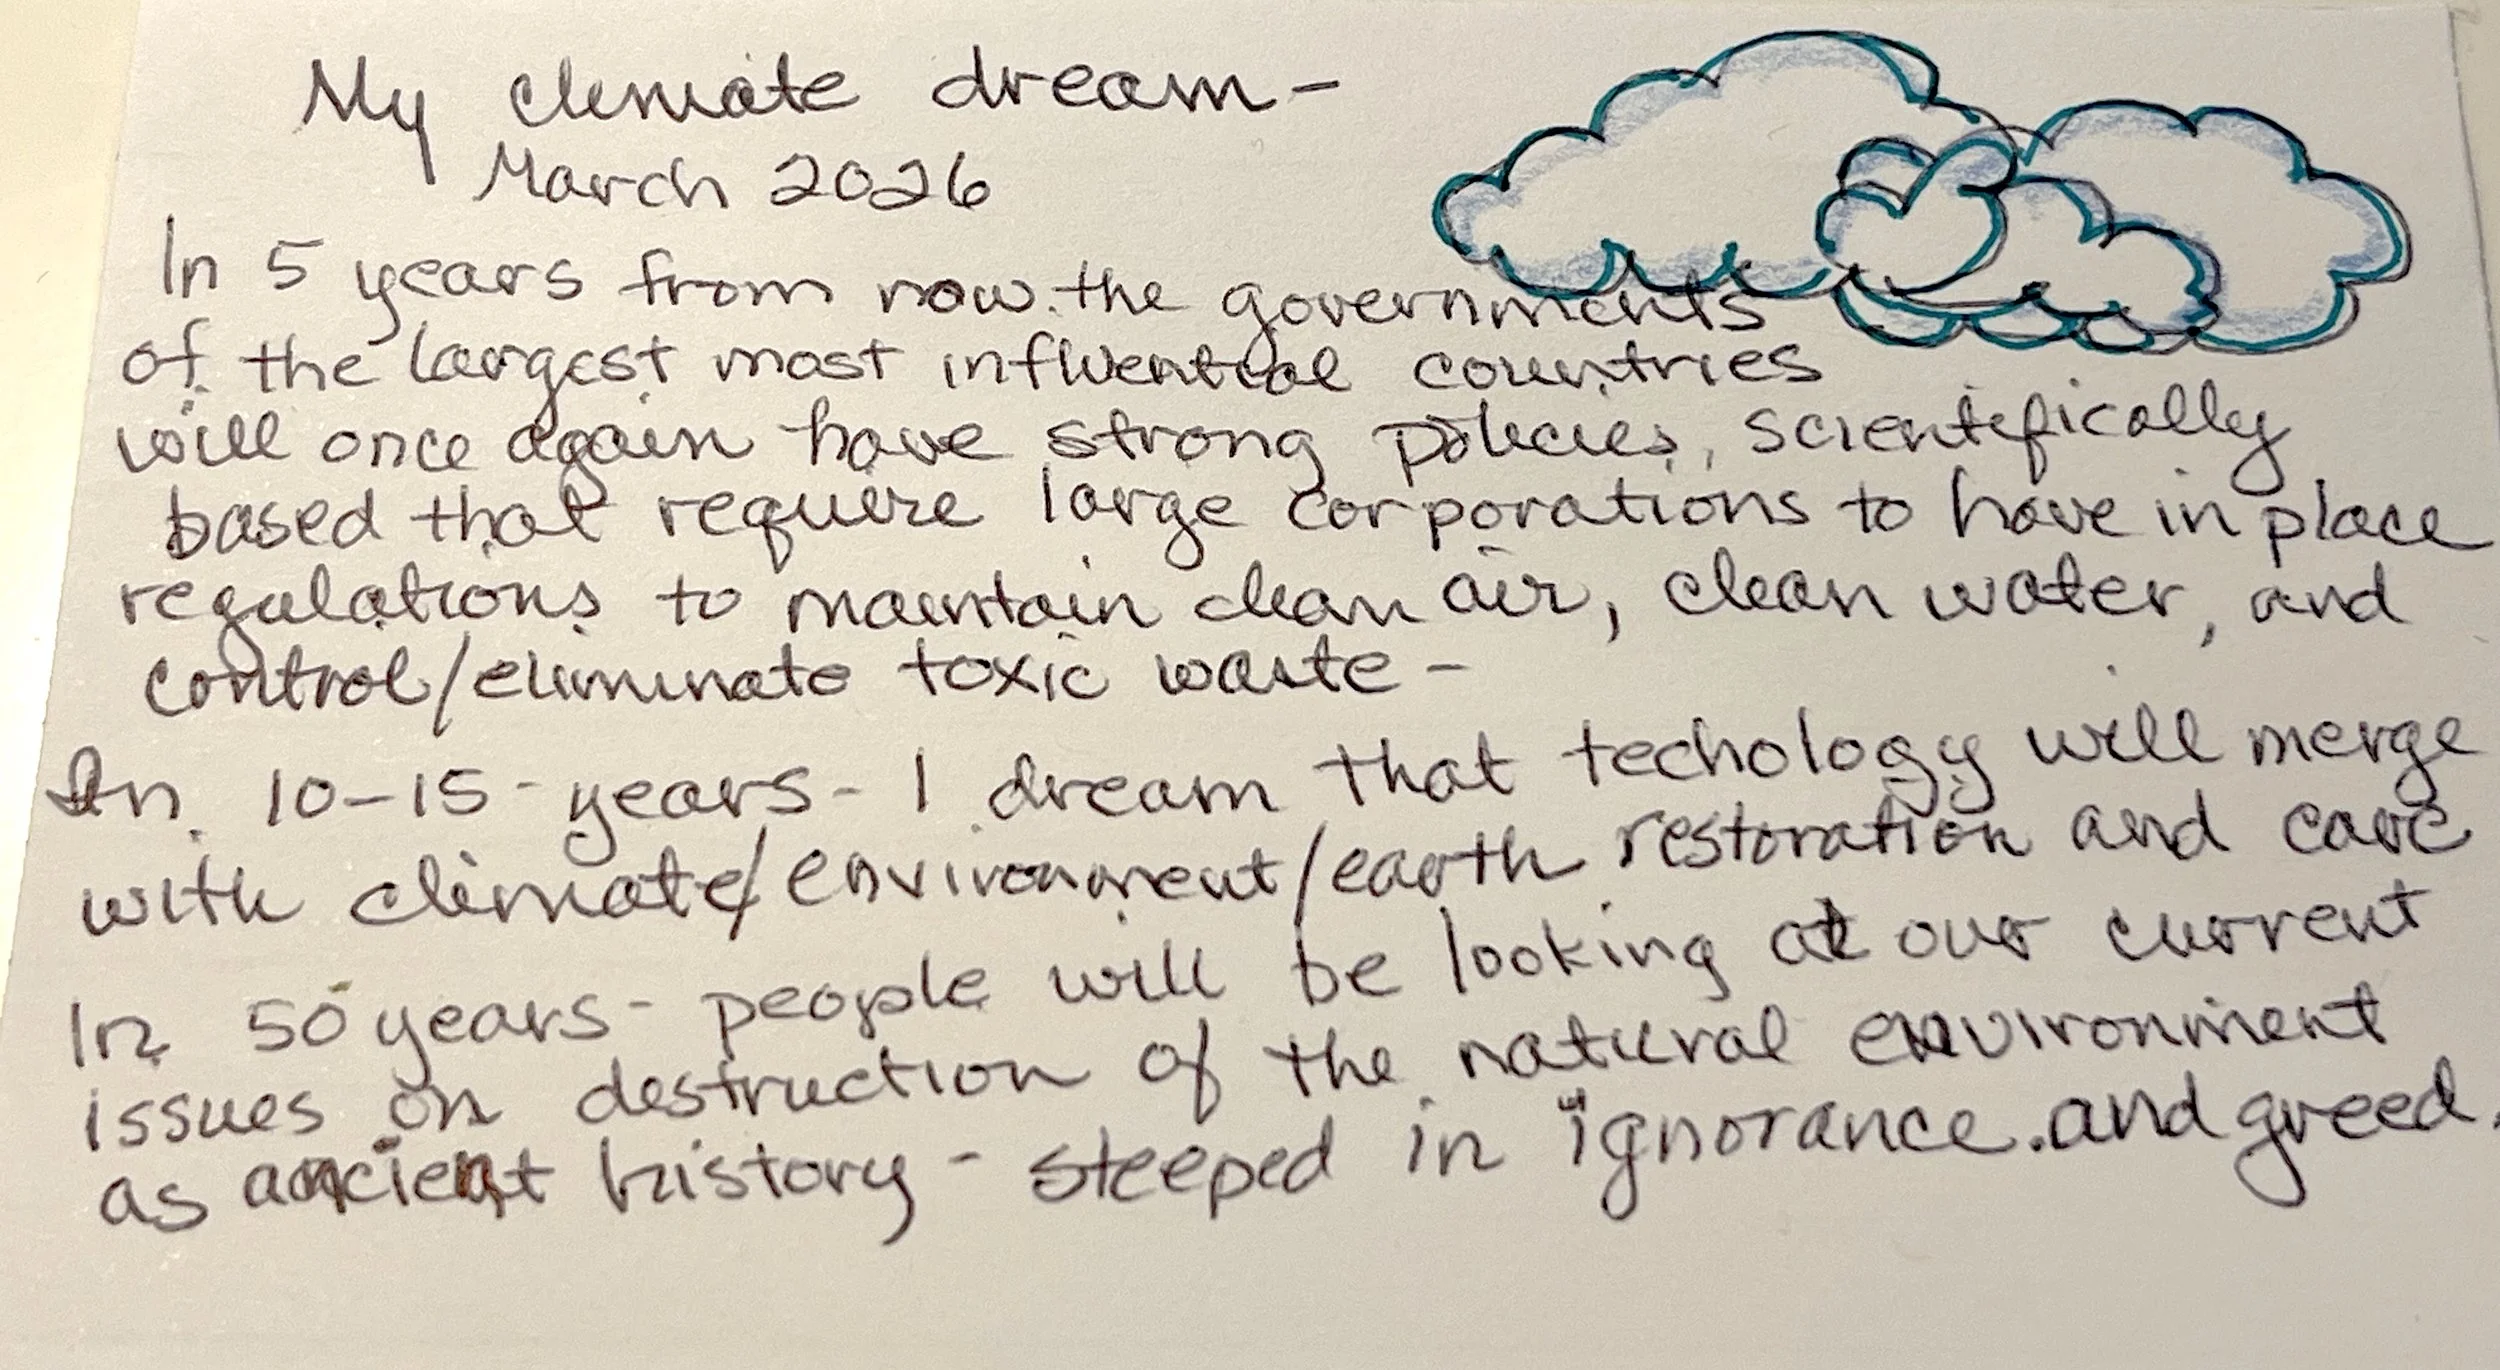 My climate dream -
March 2026
In 5 years from now the governments
of the largest most influential countries
will once again have strong policies, scientifically
based that require large corporations to have in place
regulations to maintain clean air, clean water, and
control/eliminate toxic waste -
In 10-15-years- I dream that techology will merge
with climate/environment/earth restoration and care
In 50 years- people will be looking at our current
issues on destruction of the natural environment
as ancient history - steeped in ignorance.and greed.